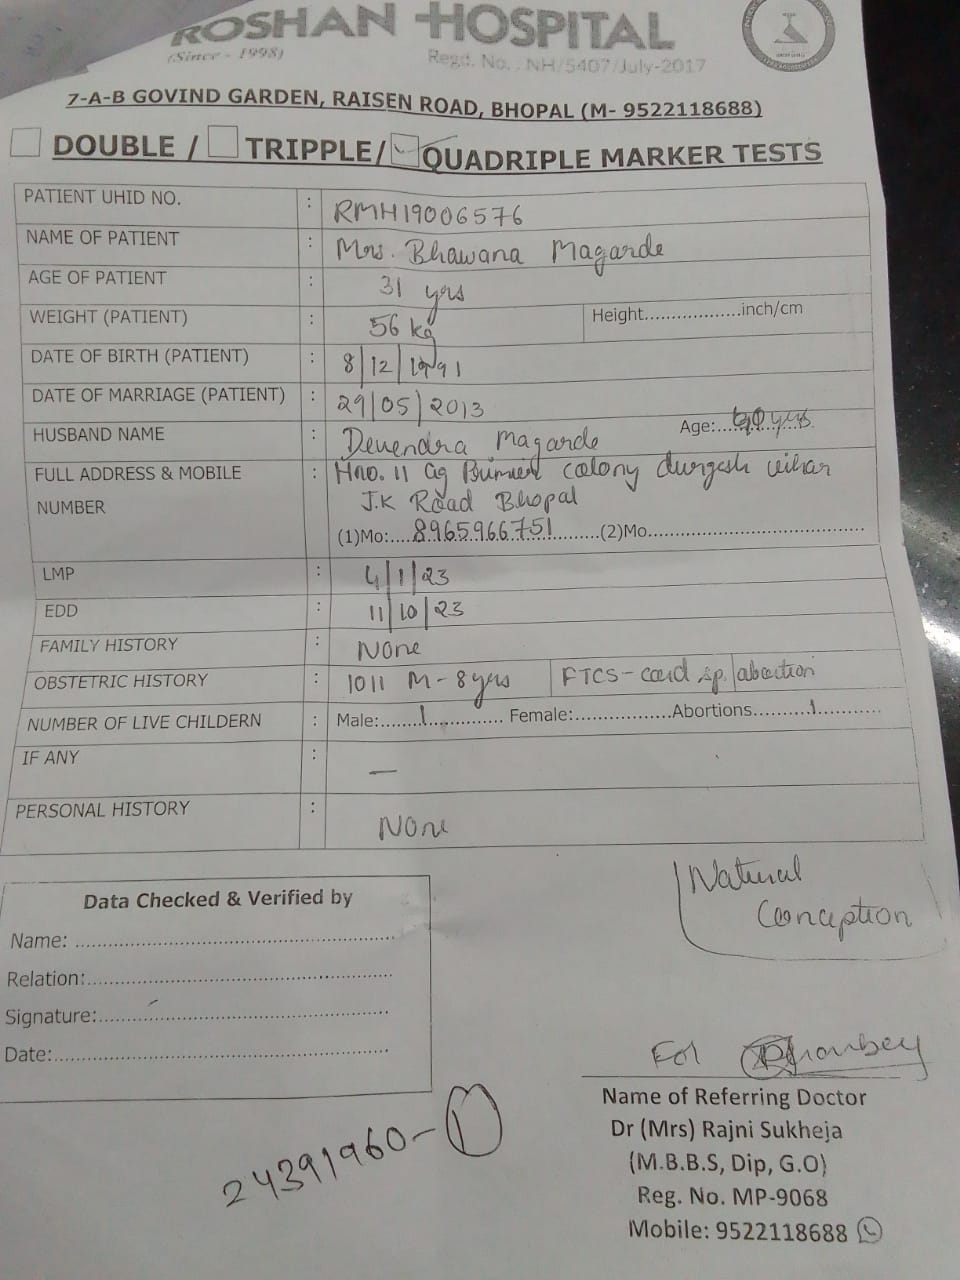 ROSHAN HOSPITAL
(Since - 1998)
Regd. No. : NH/5407/July-2017
7-A-B GOVIND GARDEN, RAISEN ROAD, BHOPAL (M- 9522118688)
DOUBLE / TRIPPLE/ QUADRIPLE MARKER TESTS
PATIENT UHID NO. : RMH19006576
NAME OF PATIENT : Mrs. Bhawana Magarde
AGE OF PATIENT : 31 yrs
WEIGHT (PATIENT) : 56 kg Height..................inch/cm
DATE OF BIRTH (PATIENT) : 8/12/1991
DATE OF MARRIAGE (PATIENT) : 29/05/2013
HUSBAND NAME : Devendra Magarde Age:.... yrs.
FULL ADDRESS & MOBILE : Hno. 11 Ag colony durgesh vihar
NUMBER J.K Road Bhopal
(1)Mo:....8965966751.........(2)Mo.......................................
LMP : 4/1/23
EDD : 11/10/23
FAMILY HISTORY : None
OBSTETRIC HISTORY : 1011 M - 8 yrs FTCS - sp. abortion
NUMBER OF LIVE CHILDERN : Male:.......1............. Female:.................Abortions..........1...........
IF ANY : —
PERSONAL HISTORY : None
Natural
Conception
Data Checked & Verified by
Name: ......................................................
Relation:....................................................
Signature:..................................................
Date:.........................................................
For
Name of Referring Doctor
Dr (Mrs) Rajni Sukheja
(M.B.B.S, Dip, G.O)
Reg. No. MP-9068
Mobile: 9522118688
24391960-1